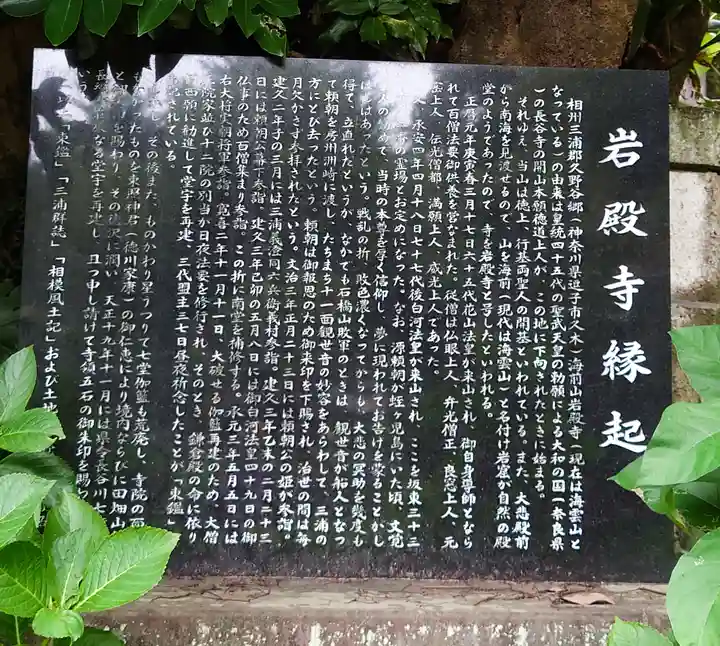 岩殿寺縁起
相州三浦郡久野谷郷(神奈川県逗子市久木)海前山岩殿寺(現在は海雲山と
なっている)の由来は皇統四十五代の聖武天皇の勅願による大和の国(奈良県
)の長谷寺の開山本願徳道上人が、この地に下向されたときに始まる。
それゆえ、当山は徳上、行基両聖人の開基といわれている。また、大悲殿前
から南海を見渡せるので、山を海前(現代は海雲山)と名付け岩窟が自然の殿
堂のようであったので、寺を岩殿寺と号したといわれる。
正暦元年庚寅春三月十七日六十五代花山法皇が来山され、御自身導師となら
れて百僧法要御供養を営なまれた。従僧は仏眼上人、弁光僧正、良窓上人、元
密上人、伝光僧都、満願上人、威光上人であった。
久、承安四年四月十八日七十七代後白河法皇が来山され、ここを坂東三十三
の霊場とお定めになった。なお、源頼朝が蛭ヶ児島にいた頃、文覚
の勧めで、当時の本尊を厚く信仰し、夢に現われてお告げを蒙ることがし
ばしばあったという。戦乱の折、敗色濃くなってからも、大悲の冥助を幾度も
得て、立直れたというが、なかでも石橋山敗軍のときは、観世音が船人となっ
て頼朝を房州洲崎に渡し、たちまち十一面観世音の妙容をあらわして、三浦の
方にとび去ったという。頼朝は御報恩のため御朱印を下賜され、治世の間は毎
月欠かさず参拝されたという。文治三年正月二十三日には頼朝公の姫が参詣。
建久二年子の三月には三浦義澄同六兵衛義村参詣。建久三年乙未の二月二十三
日には頼朝公幕下参詣、建久三年己卯の五月八日には御白河法皇四十九日の御
仏事のため百僧集まり参詣。この折に南堂を補修する。承元三年五月五日には
右大将実朝将軍参詣。寛喜二年十一月十一日、大破せる伽藍再建のため、大僧
院家並び十二院の別当が日夜法要を修行され、そのとき、鎌倉殿の命に依り
西願に勧進して堂宇を再建、三代盟主三七日昼夜祈念したことが「東鑑」
記されている。
その後また、ものかわり星うつりて七堂伽藍も荒廃し、寺院の面
ったものを東照神君(徳川家康)の御仁恵により境内ならびに田畑山
を賜わり、その徳沢に潤い、天正十九年十一月には県令長谷川七
なる堂宇を再建し、且つ申し請けて寺領五石の御朱印を賜わ
いう。
「東鑑」「三浦群誌」「相模風土記」および土地